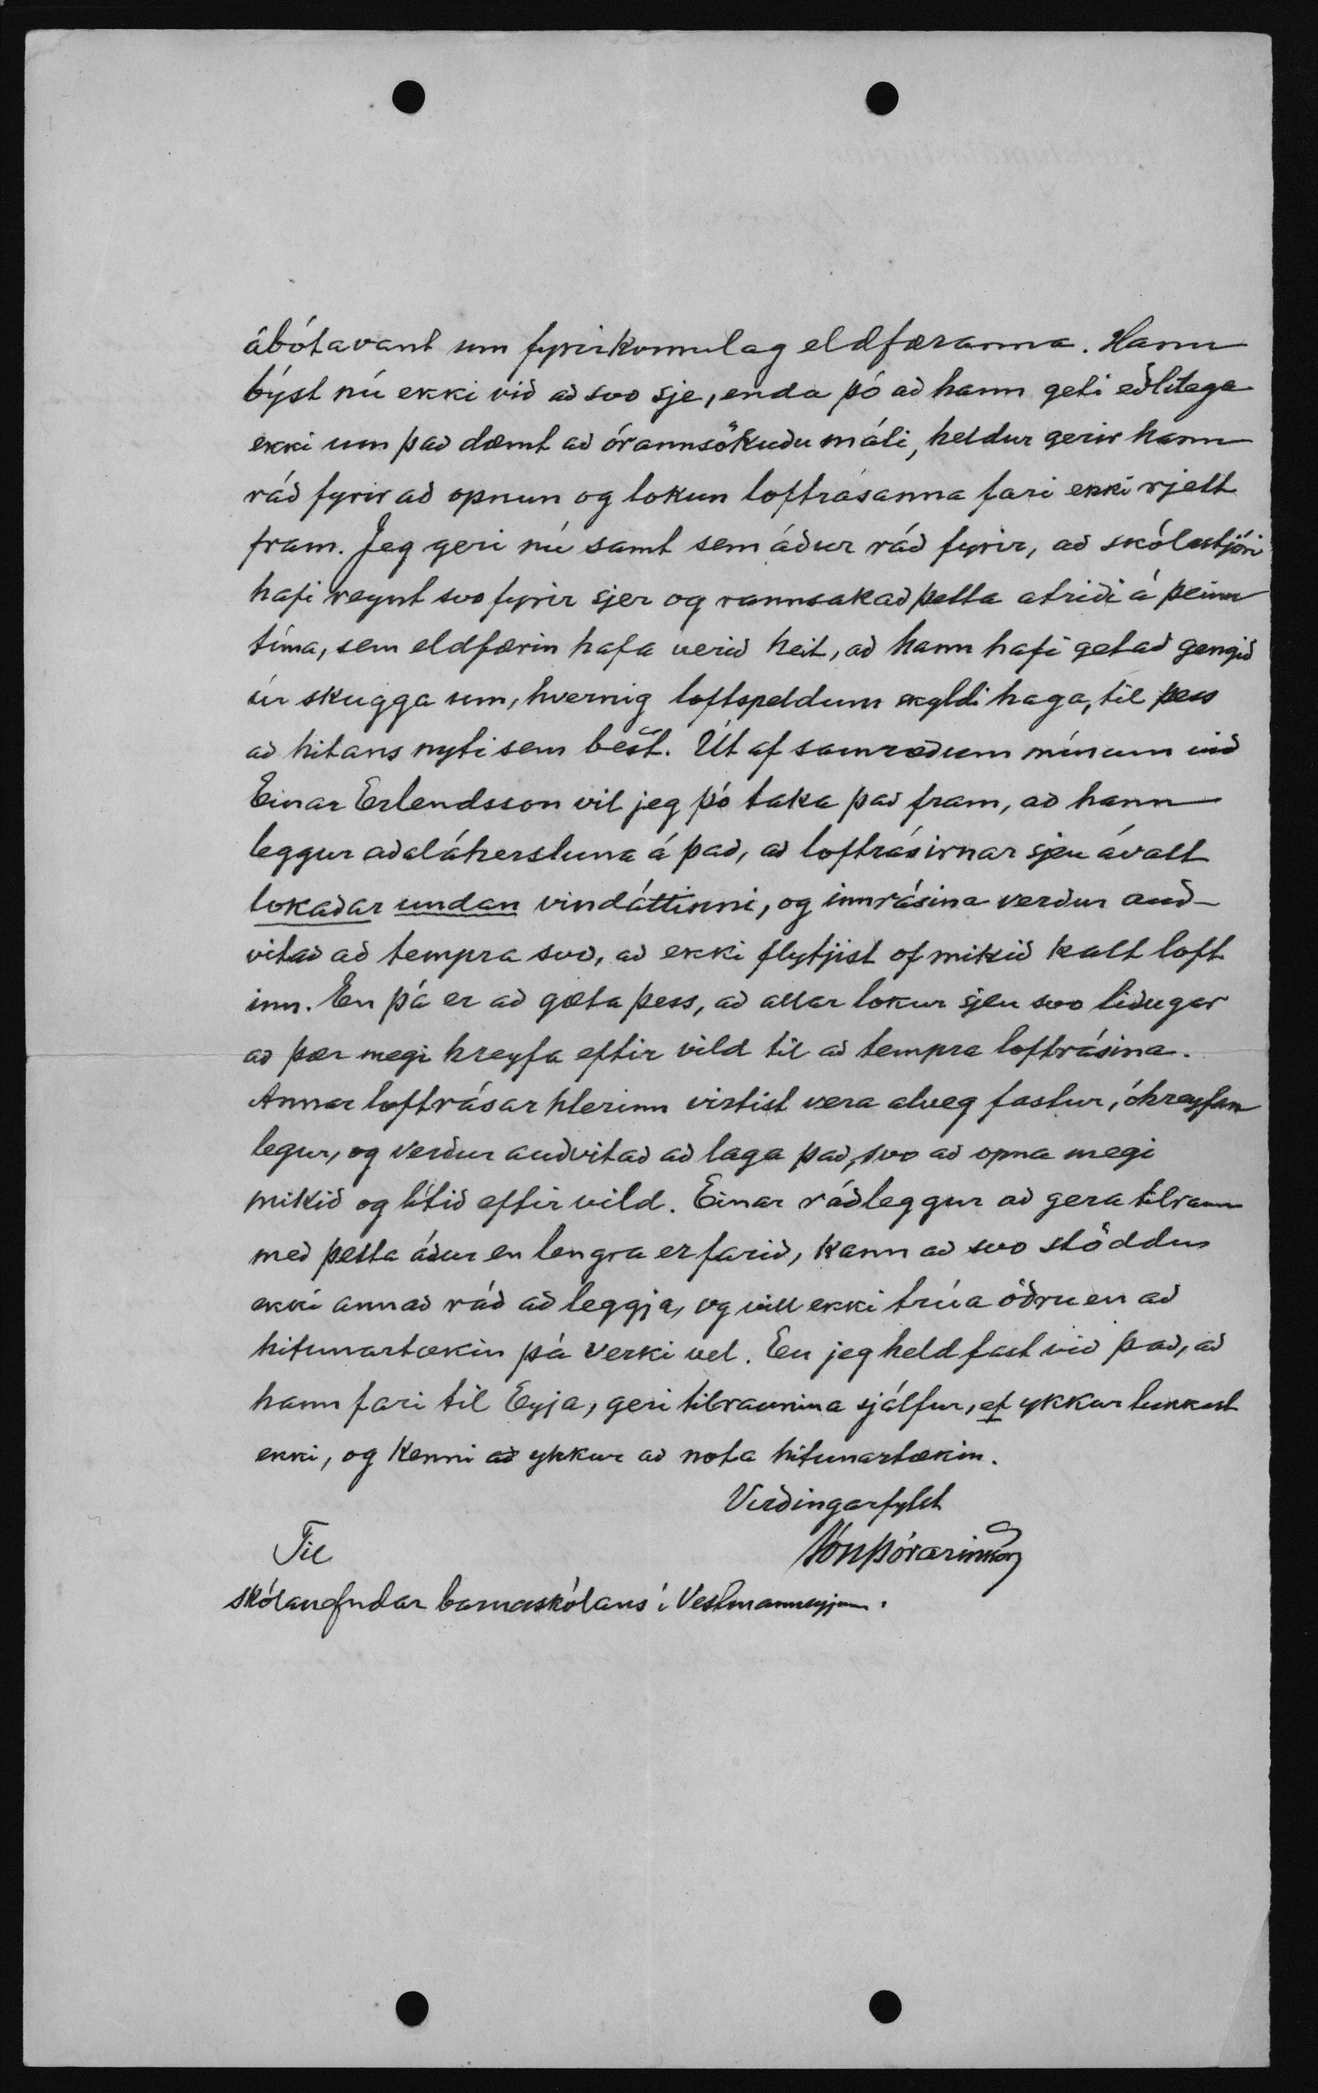 ábótavant um fyrirkomulag eldfæranna. Hann
býst nú ekki við að svo sje, enda þó að hann geti eðlilega
ekki um það dæmt að órannsökuðu máli, heldur gerir hann
ráð fyrir að opnun og lokun loftrásanna fari ekki rjett
fram. Jeg geri nú samt sem áður ráð fyrir, að skólastjóri
hafi reynt svo fyrir sjer og rannsakað þetta atriði á þeim
tíma, sem eldfærin hafa verið heit, að hann hafi getað gengið
úr skugga um, hvernig loftspeldum skyldi haga, til þess
að hitans nyti sem best. Út af samræðum mínum við
Einar Erlendsson vil jeg þó taka það fram, að hann
leggur aðaláhersluna á það, að loftrásirnar sjeu ávalt
lokaðar undan vindáttinni, og innrásina verður auð-
vitað að tempra svo, að ekki flytjist of mikið kalt loft
inn. En þá er að gæta þess, að allar lokur sjeu svo liðugar
að þær megi hreyfa eftir vild til að tempra loftrásina.
Annar loftrásarhlerinn virtist vera alveg fastur, óhreyfan
legur, og verður auðvitað að laga það, svo að opna megi
mikið og lítið eftir vild. Einar ráðleggur að gera tilraun
með þetta áður en lengra er farið, kann að svo stöddu
ekki annað ráð að leggja, og vill ekki trúa öðru en að
hitunartækin þá verki vel. En jeg held fast við það, að
hann fari til Eyja, geri tilraunina sjálfur, ef ykkur lukkast
ekki, og kenni ykkur að nota hitunartækin.
Virðingarfylst
Jón Þórarinsson
Til
skólanefndar barnaskólans í Vestmannaeyjum.